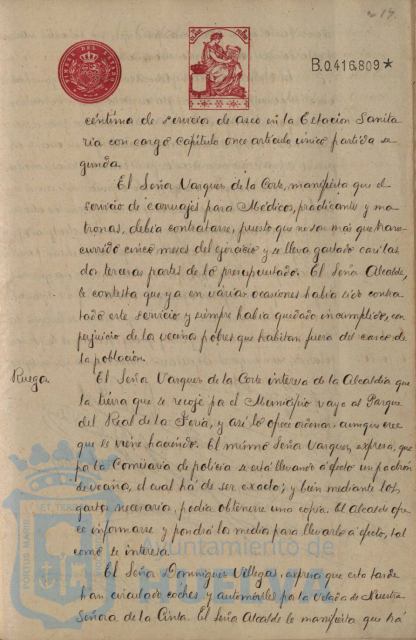 B.0.416,809*
céntimos de servicio de aseo en la Estación Sanita
ria con cargo Capítulo once artículo único partida se
gunda.
El Señor Vazquez de la Corte, manifiesta que el
servicio de carruajes para Médicos, practicantes y ma
tronas, debía contratarse, puesto que no son más que trans
curridos cinco meses del ejercicio y se lleva gastado casi las
dos terceras partes de lo presupuestado. El Señor Alcalde,
le contesta que ya en varias ocasiones había sido contra
tado este servicio y siempre había quedado incumplido, con
perjuicio de los vecinos pobres que habitan fuera del casco de
la población.
Ruego.
El Señor Vazquez de la Corte interesa de la Alcaldía que
la tierra que se recoje por el Municipio vaya al Parque
del Real de la Feria, y así lo ofrece ordenar aunque cree
que se viene haciendo. El mismo Señor Vazquez, expresa, que
por la Comisaría de policía se está llevando a efecto un padrón
de vecinos, el cual há de ser exacto; y bien mediante los
gastos necesarios, podía obtenerse una copia. El Alcalde ofre
ce informarse y pondrá los medios para llevarlo á efecto, tal
como se interesa.
El Señor Dominguez Villegas expresa que esta tarde
han circulado coches y automóviles por la Velada de Nuestra
Señora de la Cinta. El Señor Alcalde le manifiesta que há
Ayuntamiento de
HUELVA